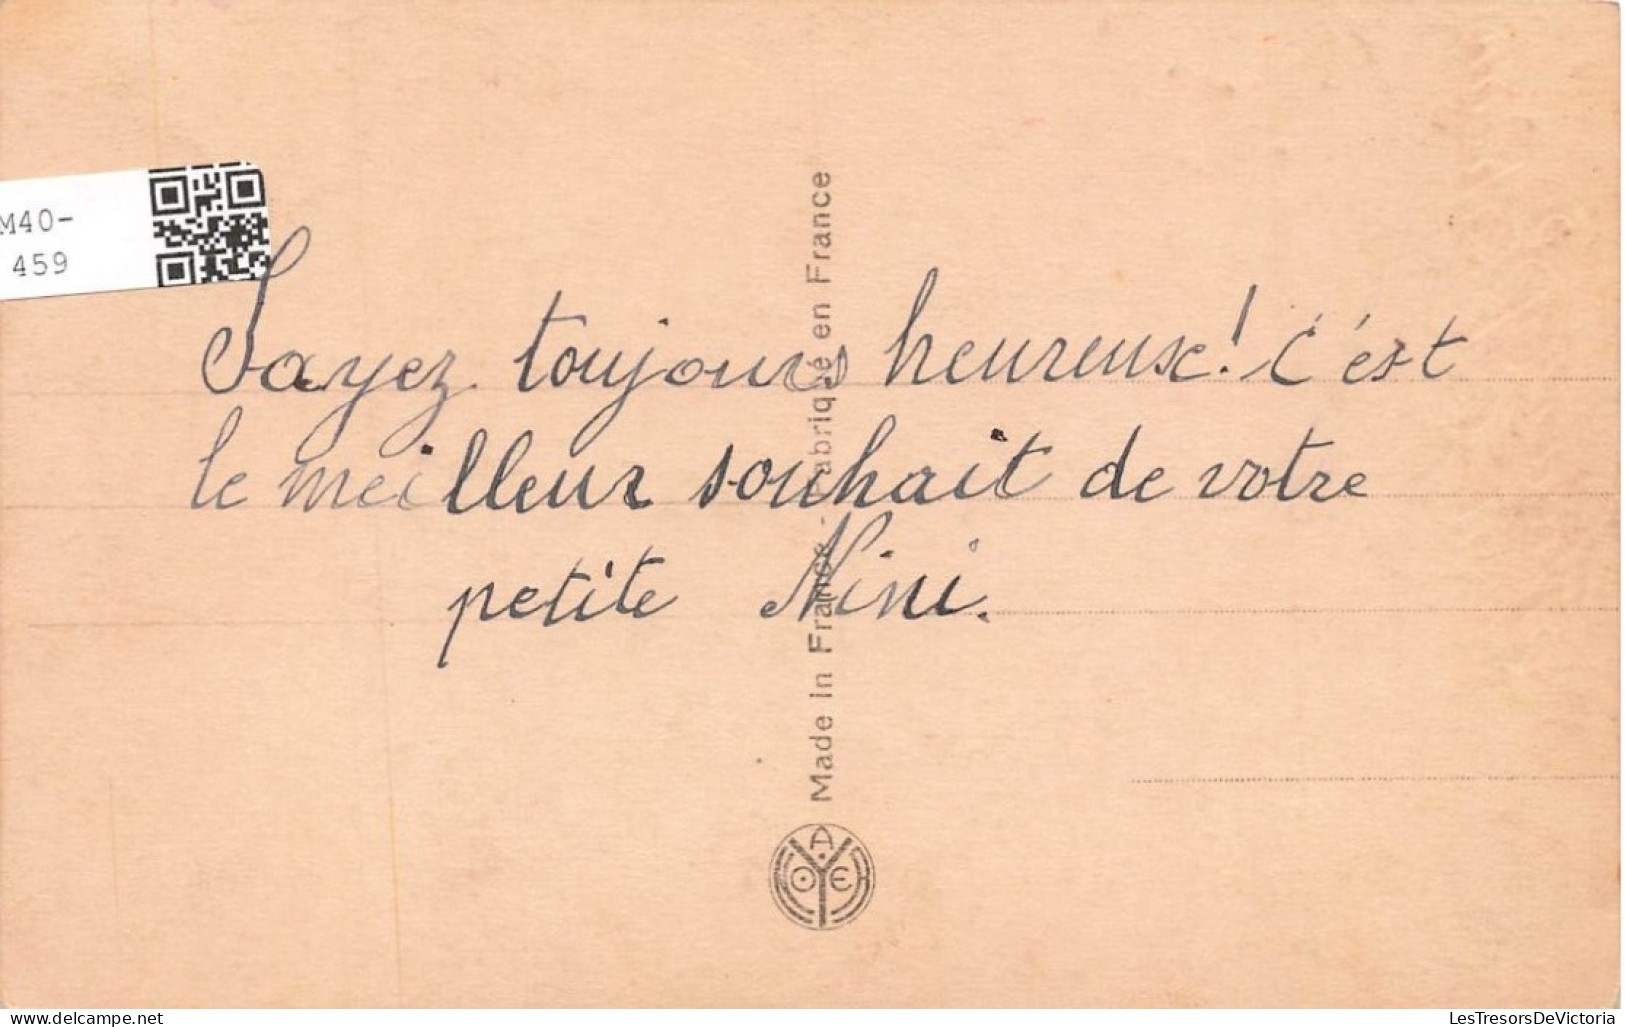 M40-
459
Sayez toujours heureuse! c'est
le meilleur souhait de votre
petite Nini.
Made in France - Fabriqué en France
LesTresorsDeVictoria
https://www.delcampe.net